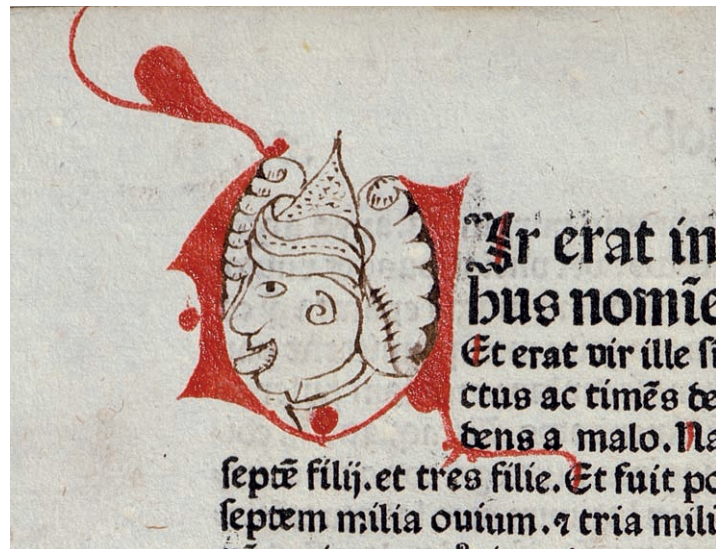 Vir erat in
hus nomīe
Et erat vir ille si
ctus ac timēs de
dens a malo. Na
septē filij. et tres filie. Et fuit po
septem milia ouium. ⁊ tria mili